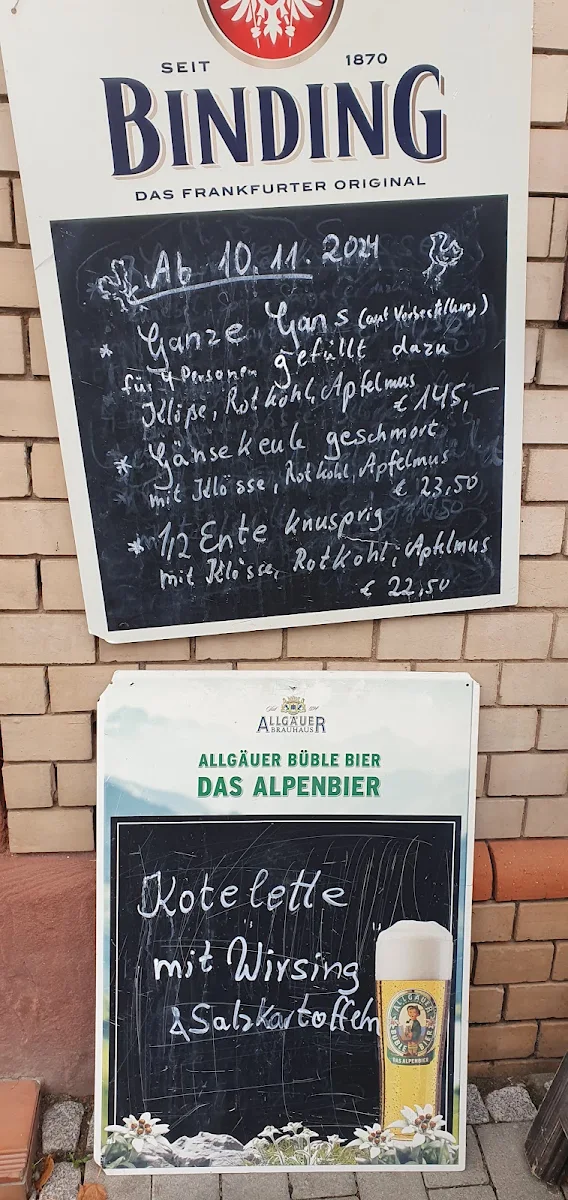 SEIT 1870
BINDING
DAS FRANKFURTER ORIGINAL
Ab 10.11.2024
* Ganze Gans (auf Vorbestellung)
für 4 Personen gefüllt dazu
Klöße, Rotkohl, Apfelmus
€ 145,—
* Gänsekeule geschmort
mit Klösse, Rotkohl, Apfelmus
€ 23,50
* 1/2 Ente knusprig
mit Klösse, Rotkohl, Apfelmus
€ 22,50
ALLGÄUER
BRAUHAUS
ALLGÄUER BÜBLE BIER
DAS ALPENBIER
Kotelette
mit Wirsing
& Salzkartoffeln
ALLGÄUER
BÜBLE BIER
DAS ALPENBIER